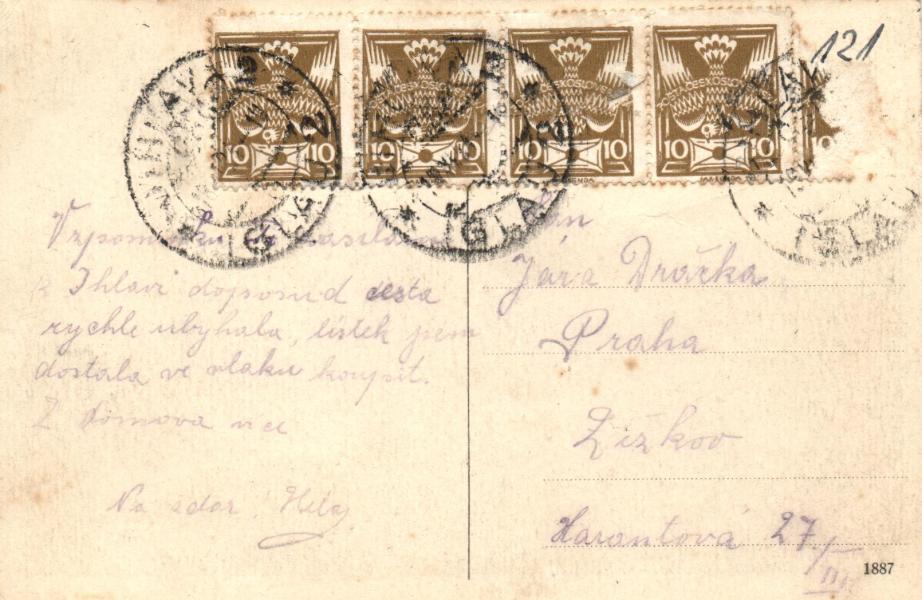 121
10 10 10 10 10 10 10
IGLAU 2
IGLAU 2
Vzpomínku zasílám
z Jihlavi doposud cesta
rychle ubyhala, lístek jsem
dostala ve vlaku koupit.
Z domova více
Na zdar! Hela
Pán
Jára Dračka
Praha
Žižkov
Harantová 27/III
1887